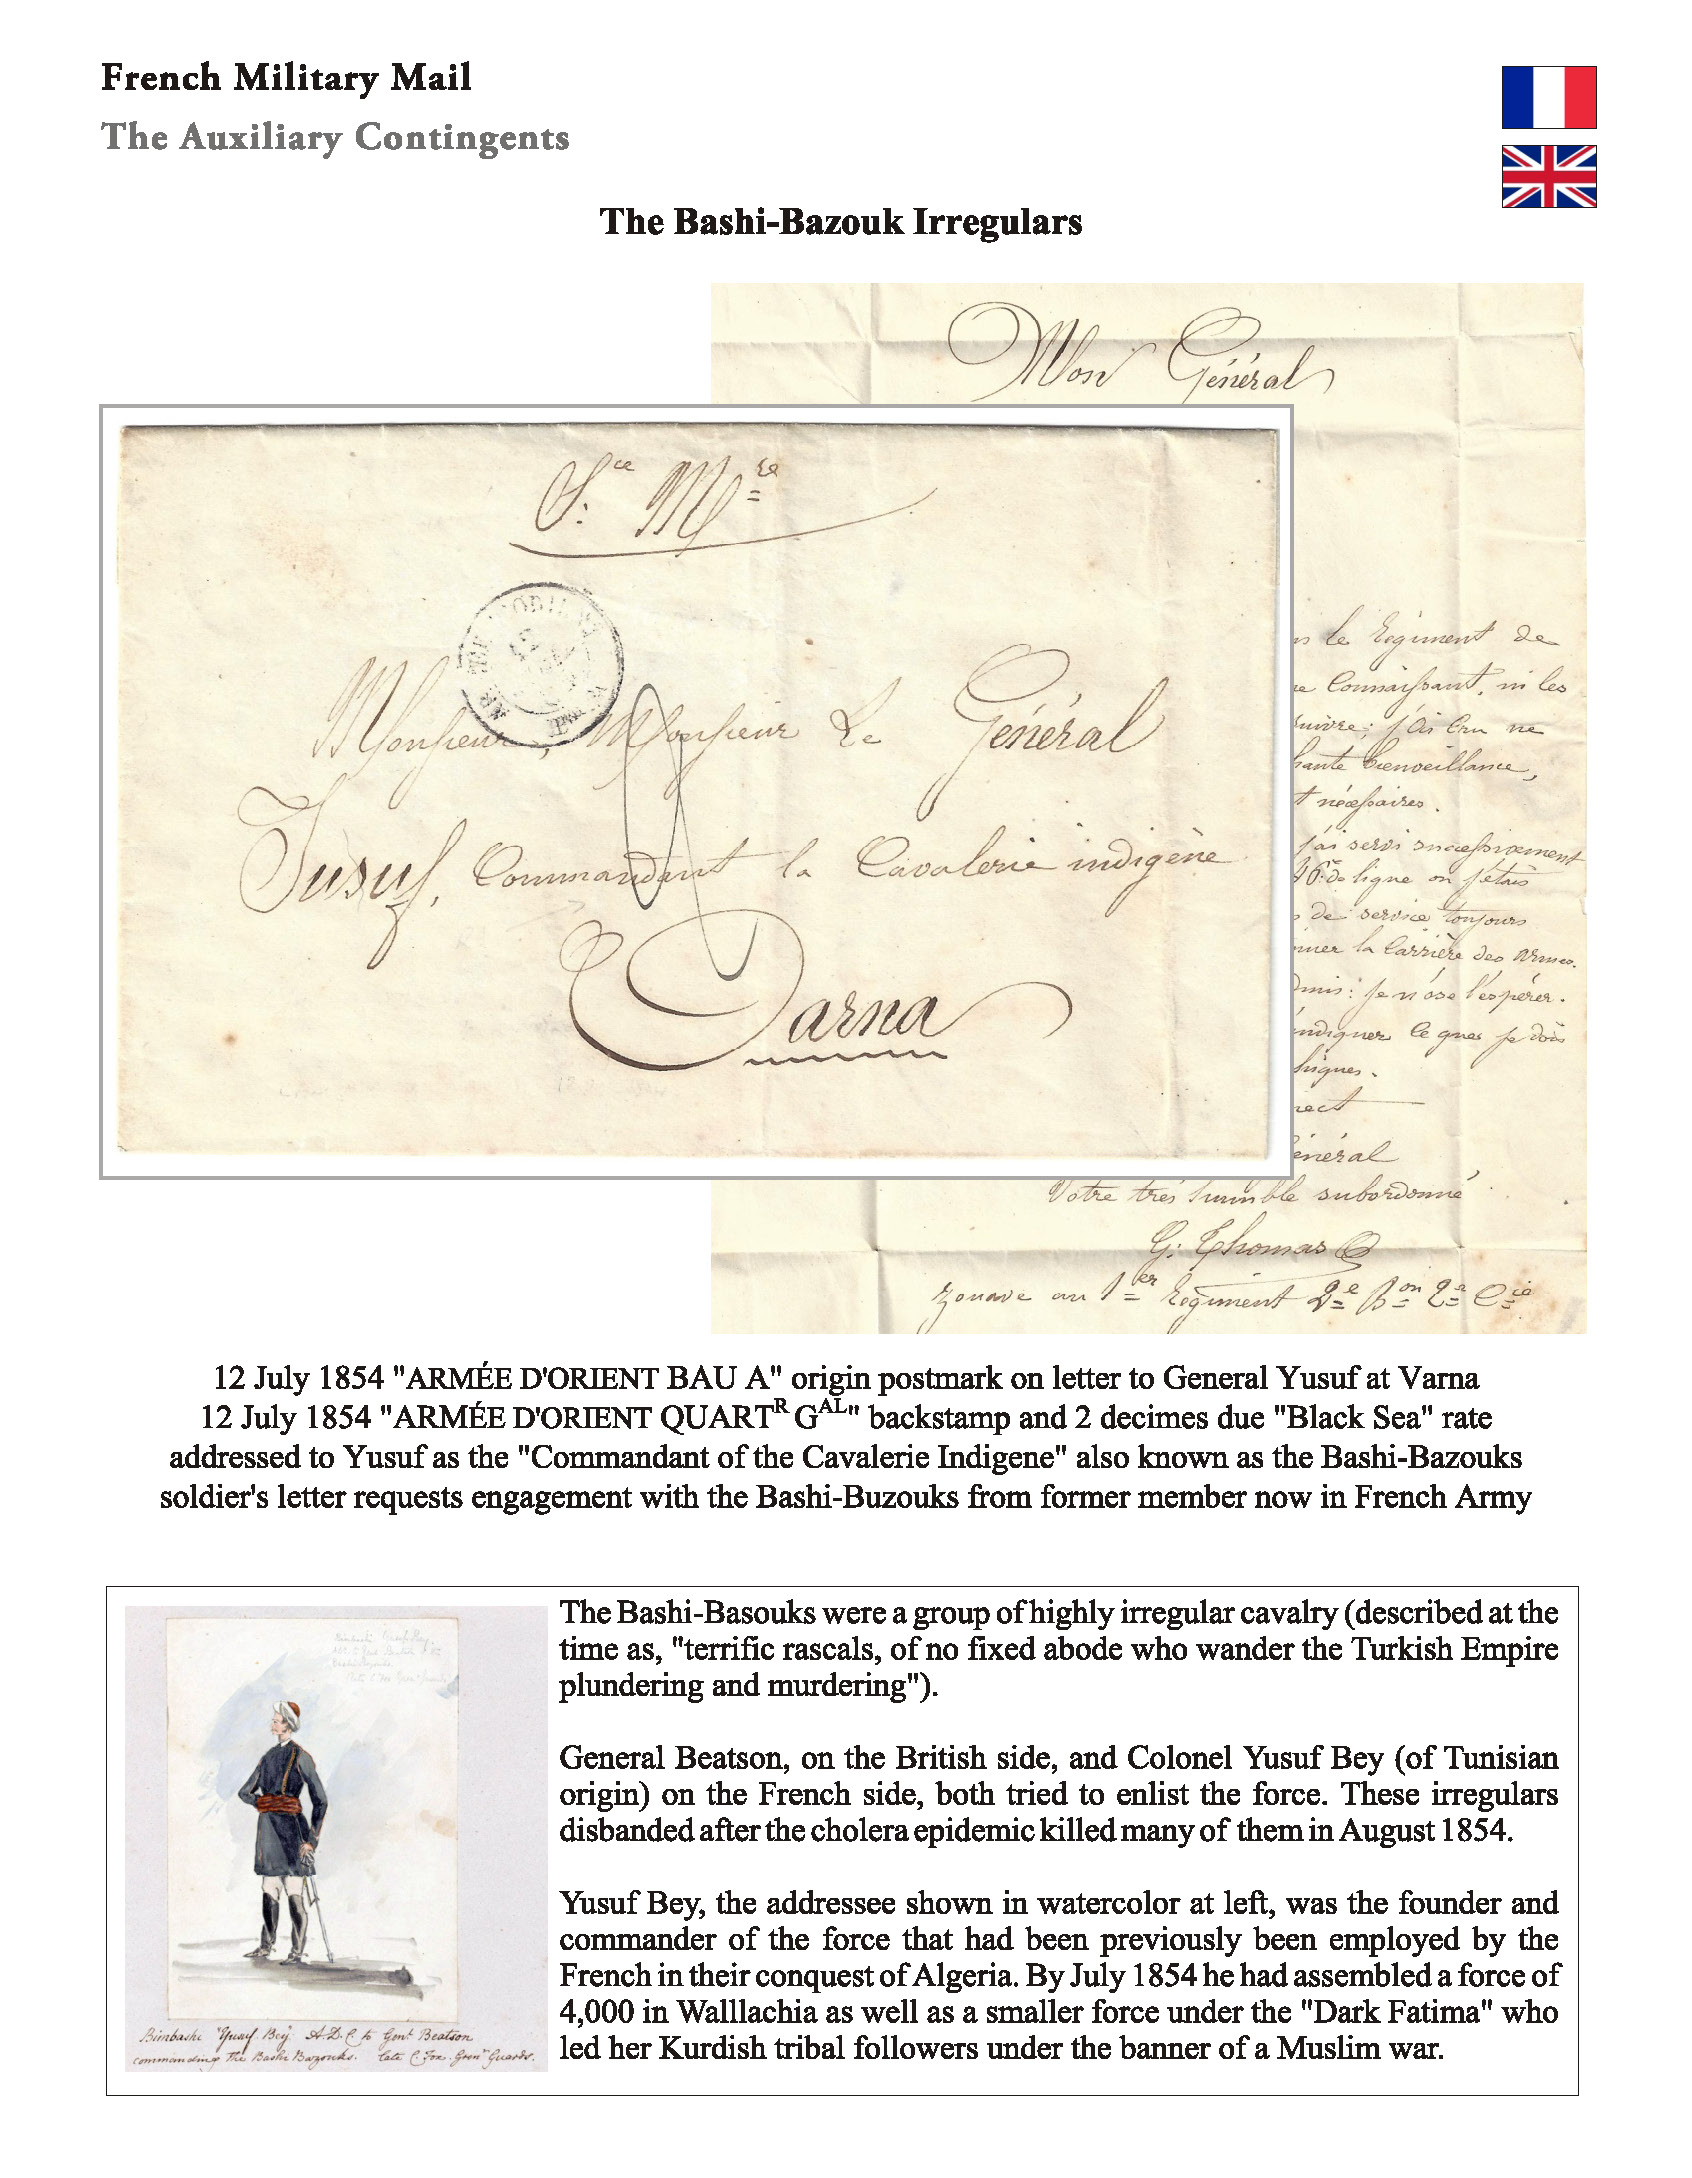 French Military Mail
The Auxiliary Contingents
The Bashi-Bazouk Irregulars
Mon Général
Sce Mre
Monsieur, Monsieur Le Général
Jusuf, Commandant la Cavalerie indigène
Varna
le Régiment de
Connaissant, ni les
suivre; j'ai cru ne
bienveillance,
nécessaires.
j'ai servi successivement
46e de ligne où j'étais
de service toujours
la Carrière des armes.
je n'ose l'espérer.
indiquer ce que je dois
Général
Votre très humble subordonné
G. Thomas
Zouave au 1er Régiment 2e Bon 2e Cie
12 July 1854 "ARMÉE D'ORIENT BAU A" origin postmark on letter to General Yusuf at Varna
12 July 1854 "ARMÉE D'ORIENT QUARTR GAL" backstamp and 2 decimes due "Black Sea" rate
addressed to Yusuf as the "Commandant of the Cavalerie Indigene" also known as the Bashi-Bazouks
soldier's letter requests engagement with the Bashi-Buzouks from former member now in French Army
The Bashi-Basouks were a group of highly irregular cavalry (described at the
time as, "terrific rascals, of no fixed abode who wander the Turkish Empire
plundering and murdering").
General Beatson, on the British side, and Colonel Yusuf Bey (of Tunisian
origin) on the French side, both tried to enlist the force. These irregulars
disbanded after the cholera epidemic killed many of them in August 1854.
Yusuf Bey, the addressee shown in watercolor at left, was the founder and
commander of the force that had been previously been employed by the
French in their conquest of Algeria. By July 1854 he had assembled a force of
4,000 in Walllachia as well as a smaller force under the "Dark Fatima" who
led her Kurdish tribal followers under the banner of a Muslim war.
Bimbashi "Yusuf Bey". A.D.C. to Genl Beatson
commanding the Bashi Bazouks. late C. Fox. Gren. Guards.